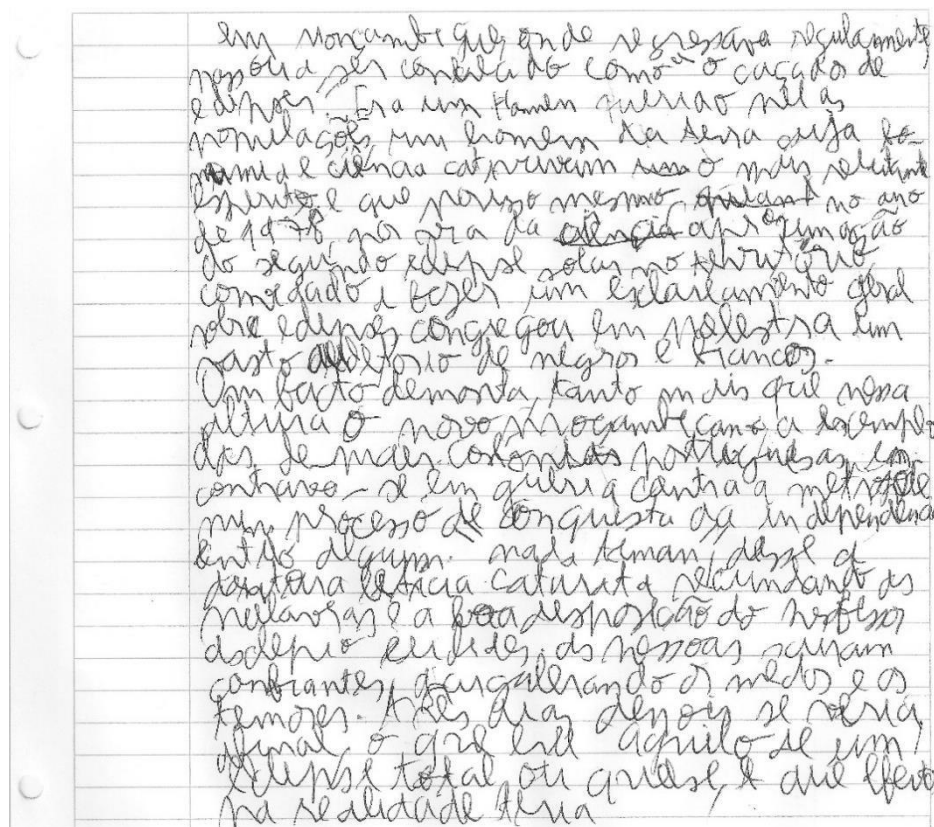 em Moncambi que, onde regressava regularmente,
passou a ser conhecido como "o caçador de
eclipses". Era um Homem querido pelas
populações, um homem da terra cuja bo-
e ciência cativavam o mais relutante
espírito, e que por isso mesmo no ano
de 1978, por via da aproximação
do segundo eclipse solar no território,
convidado a fazer um esclarecimento geral
sobre eclipses congregou em palestra um
vasto de negros e brancos.
Um facto demonsta, tanto mais que nessa
altura o novo moçambicano a exemplo
das demais colonias portuguesas en-
contrava-se em guerra contra a metropole
num processo de conquista da independencia
então nada temam, disse a
doutora leticia caturita secundando as
pallavras e a boa disposição do professor
asdepio euclides. as pessoas sairam
confiantes, gargalerando os medos e os
temores. A três dias depois se veria,
afinal, o que era aquilo de um
eclipse total ou quase, e que efeito
na realidade teria